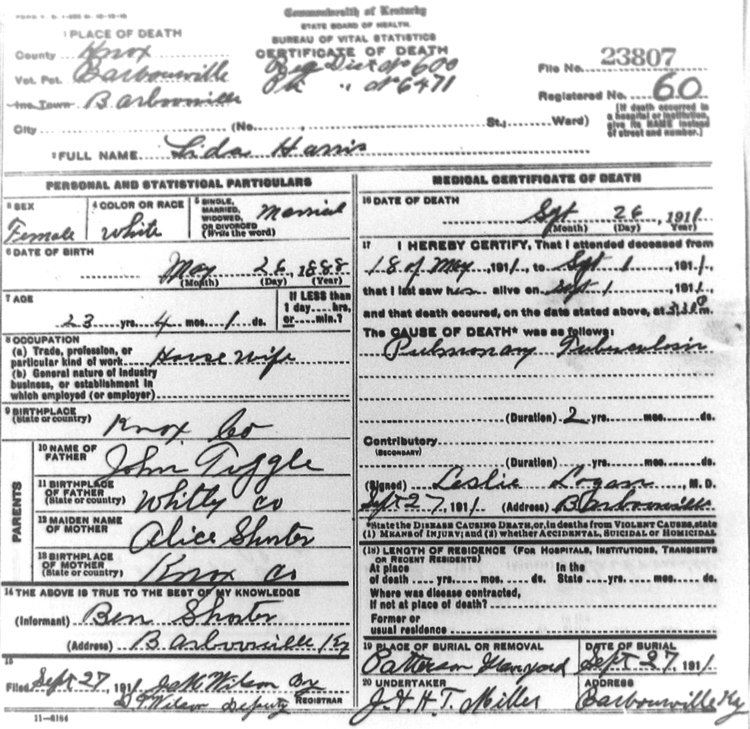 Commonwealth of Kentucky
STATE BOARD OF HEALTH.
BUREAU OF VITAL STATISTICS
CERTIFICATE OF DEATH
1 PLACE OF DEATH
County Knox
Vot. Pct. Barbourville
Inc. Town Barbourville
City (No. , St.; Ward)
Reg Dist No 600
" No 6471
File No. 23807
Registered No. 60
[If death occurred in a hospital or institution, give its NAME instead of street and number.]
2 FULL NAME Lida Harris
PERSONAL AND STATISTICAL PARTICULARS
3 SEX
Female
4 COLOR OR RACE
White
5 SINGLE, MARRIED, WIDOWED, OR DIVORCED (Write the word)
Married
6 DATE OF BIRTH
May 26, 1888
(Month) (Day) (Year)
7 AGE
23 yrs. 4 mos. 1 ds.
If LESS than 1 day....hrs. or....min.?
8 OCCUPATION
(a) Trade, profession, or particular kind of work Housewife
(b) General nature of industry business, or establishment in which employed (or employer)
9 BIRTHPLACE
(State or country) Knox Co
PARENTS
10 NAME OF FATHER John Tiggle
11 BIRTHPLACE OF FATHER (State or country) Whitly co
12 MAIDEN NAME OF MOTHER Alice Shorter
13 BIRTHPLACE OF MOTHER (State or country) Knox co
14 THE ABOVE IS TRUE TO THE BEST OF MY KNOWLEDGE
(Informant) Ben Shorter
(Address) Barbourville Ky
15
Filed Sept 27, 1911 Wilson
Wilson Deputy REGISTRAR
11-6184
MEDICAL CERTIFICATE OF DEATH
16 DATE OF DEATH
Sept 26, 1911
(Month) (Day) Year)
17 I HEREBY CERTIFY, That I attended deceased from
18 of May, 1911, to Sept 1, 1911,
that I last saw alive on Sept 1, 1911
and that death occured, on the date stated above, at m.
The CAUSE OF DEATH* was as follows:
Pulmonary Tuberculosis
(Duration) 2 yrs. mos. ds.
Contributory
(SECONDARY)
(Duration) yrs. mos. ds.
(Signed) Leslie Logan, M. D.
Sept 27, 1911 (Address) Barbourville
*State the DISEASE CAUSING DEATH, or, in deaths from VIOLENT CAUSES, state
(1) MEANS OF INJURY; and (2) whether ACCIDENTAL, SUICIDAL OR HOMICIDAL
(18) LENGTH OF RESIDENCE (FOR HOSPITALS, INSTITUTIONS, TRANSIENTS OR RECENT RESIDENTS)
At place of death yrs. mos. ds. In the State yrs. mos. ds.
Where was disease contracted, If not at place of death?
Former or usual residence
19 PLACE OF BURIAL OR REMOVAL
Patterson
DATE OF BURIAL
Sept 27, 1911
20 UNDERTAKER
J. H. T. Miller
ADDRESS
Barbourville Ky